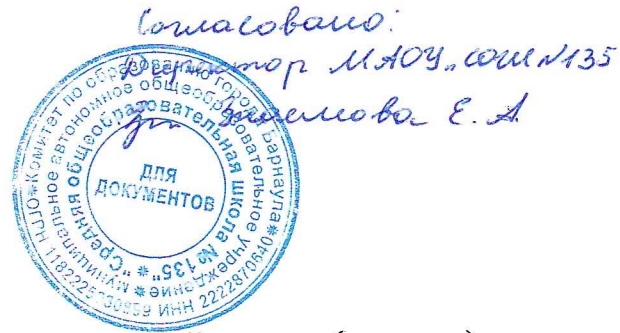 Согласовано:
Директор МАОУ „СОШ №135
Е. А
Комитет по образованию города Барнаула
муниципальное автономное общеобразовательное учреждение
"Средняя общеобразовательная школа № 135"
ИНН 2222870640
ДЛЯ
ДОКУМЕНТОВ